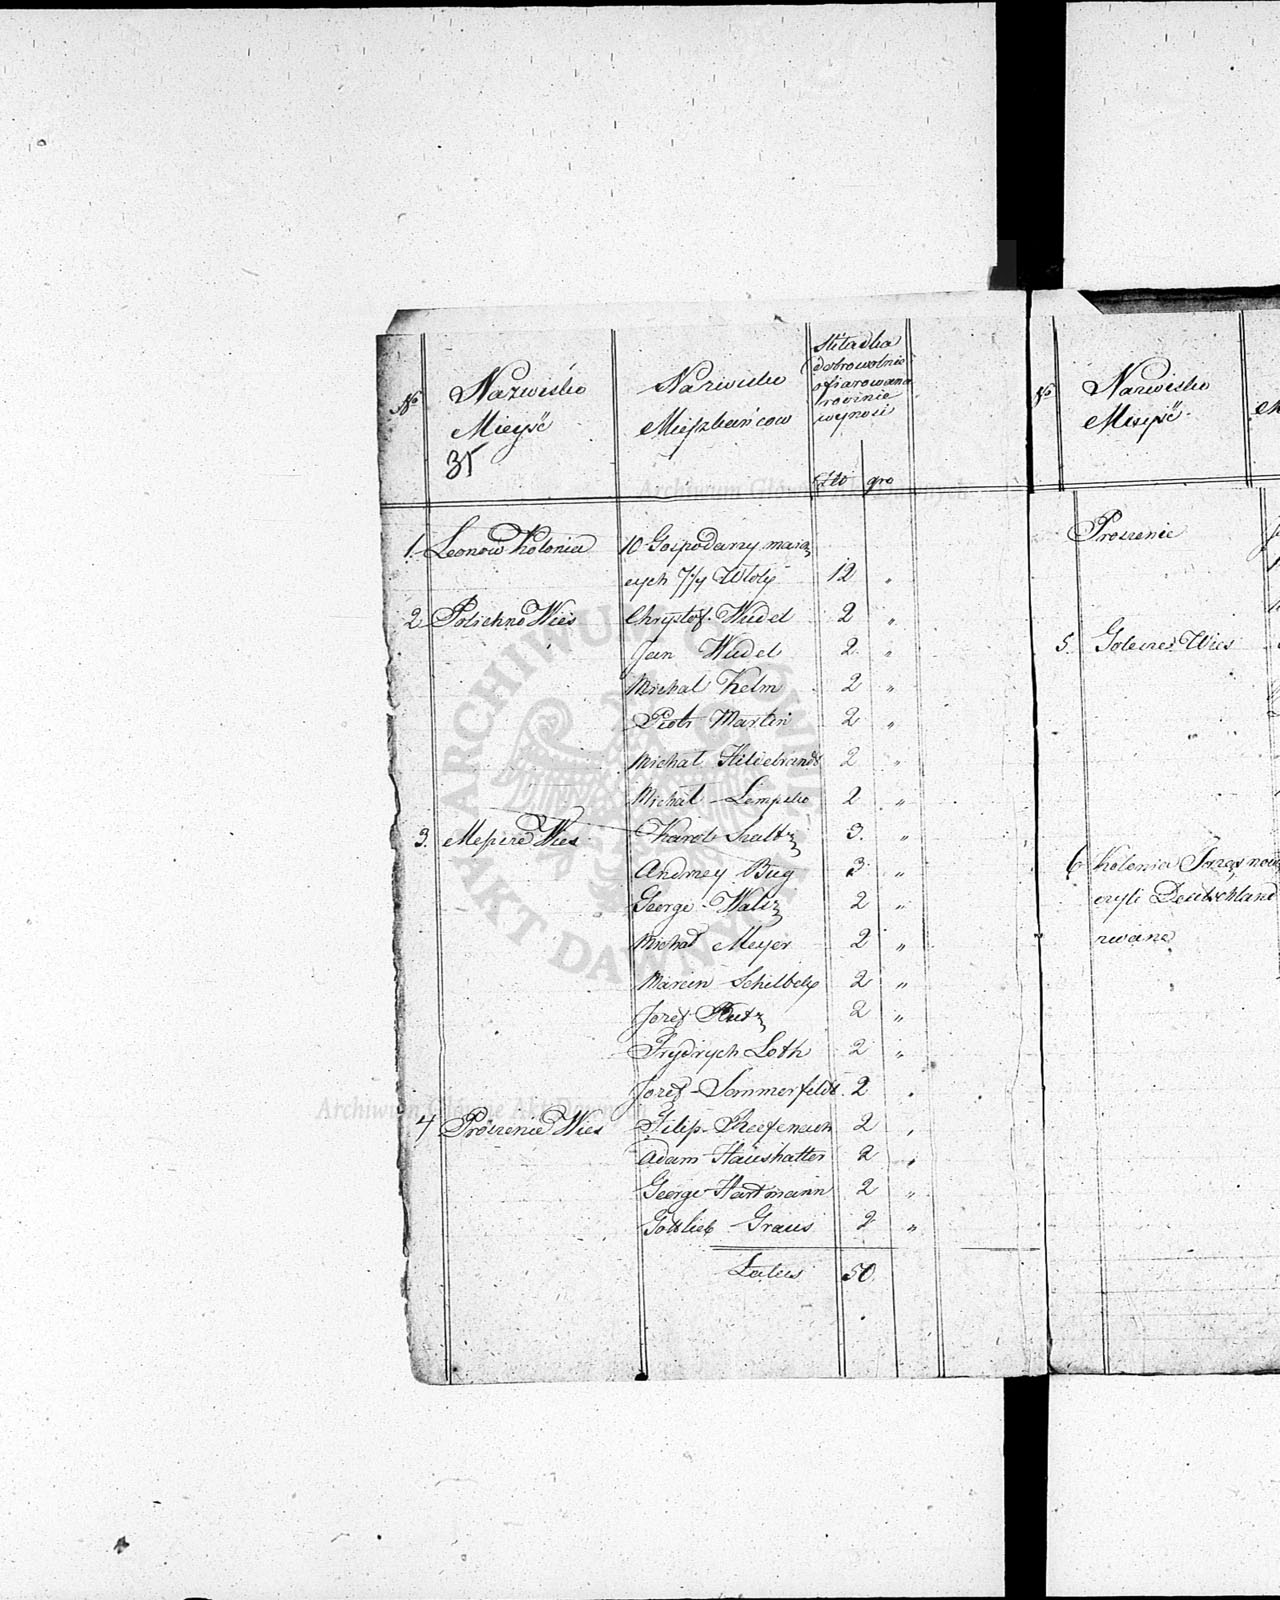 No
Nazwisko
Mieysć
35
Nazwisko
Mieszkańcow
Składka
dobrowolnie
ofiarowana
rocznie
wynosi
Zło gro
1. Leonow Kolonia 10 Gospodarzy maią
cych 7/4 Włoky 12 "
2 Polichno Wieś Chrystof Wudel 2 "
Jan Wudel 2 "
Michal Kelm 2 "
Piotr Martin 2 "
Michal Hildebrandt 2 "
Michal Lempke 2 "
3. Meszcze Wies Karol Szultz 3. "
Andrzey Bug 3 "
George Waltz 2 "
Michal Meyer 2 "
Marcin Schilbek 2 "
Jozef Rutz 2 "
Frydrych Loth 2 "
Jozef Sommerfeldt 2 "
4 Proszenie Wies Filip 2 "
Adam Häushalter 2 "
George Hartmann 2 "
Gottlieb Graus 2 "
Latus 50
No
Nazwisko
Mieysć
Proszenie
5. Golesze Wies
6 Kolonia
czyli Deutschland
zwane
ARCHIWUM GŁÓWNE AKT DAWNYCH
Archiwum Główne Akt Dawnych
Archiwum Główne Akt Dawnych